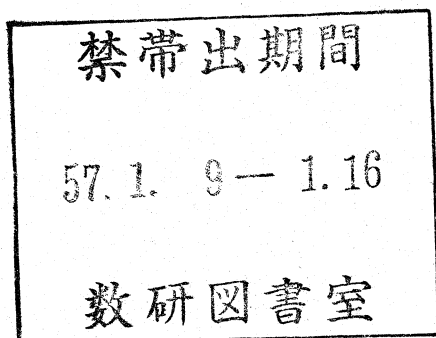 禁帯出期間
57.1. 9— 1.16
数研図書室